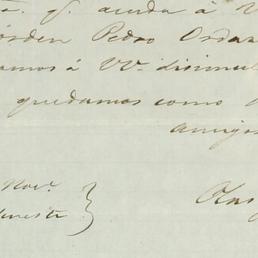 q. acuda á V
órden Pedro Ordaz
amos á VV. disimul
quedamos como
amigos
Nov.